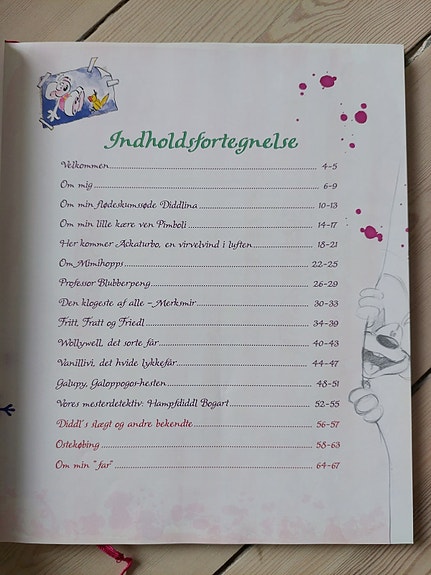 Indholdsfortegnelse
Velkommen 4-5
Om mig 6-9
Om min flødeskumsøde Diddlina 10-13
Om min lille kære ven Pimboli 14-17
Her kommer Ackaturbo, en virvelvind i luften 18-21
Om Mimihopps 22-25
Professor Blubberpeng 26-29
Den klogeste af alle – Merksmir 30-33
Fritt, Fratt og Friedl 34-39
Wollywell, det sorte får 40-43
Vanillivi, det hvide lykkefår 44-47
Galupy, Galoppogor-hesten 48-51
Vores mesterdetektiv: Hampfdiddl Bogart 52-55
Diddl's slægt og andre bekendte 56-57
Ostekøbing 58-63
Om min "far" 64-67